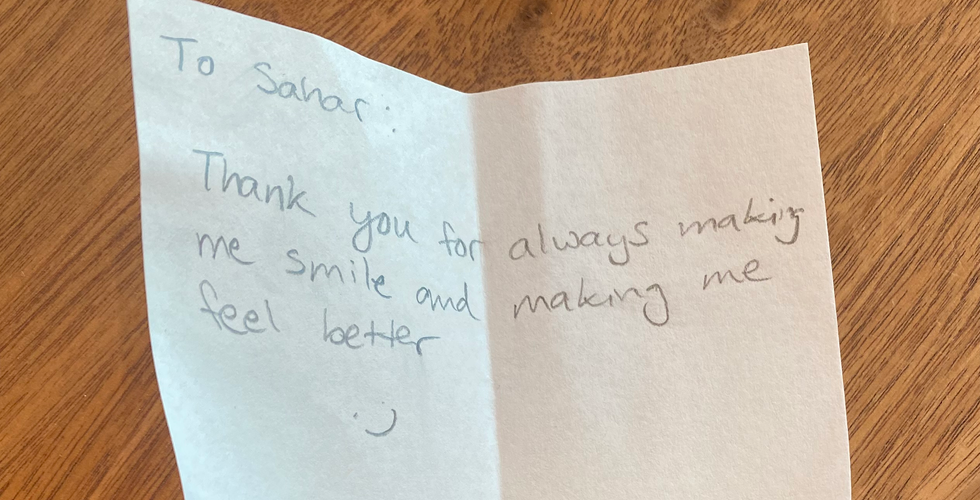 To Sahar:
Thank you for always making
me smile and making me
feel better
:)